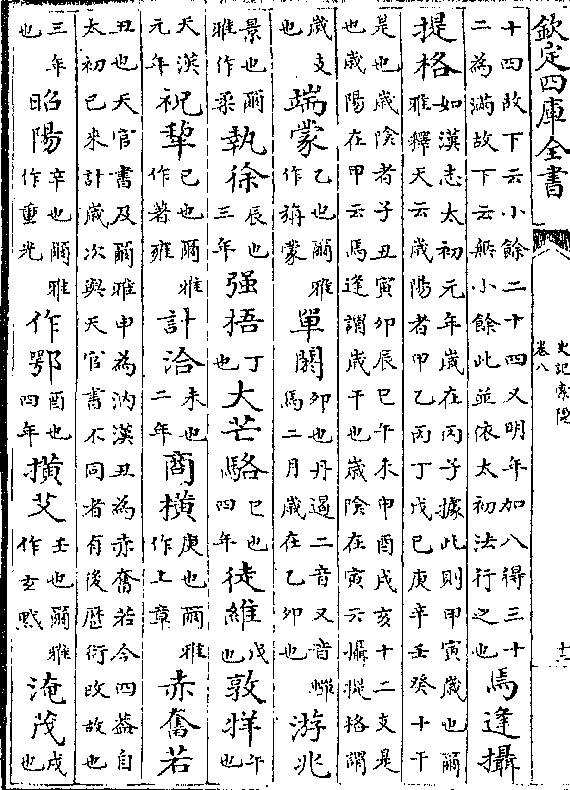 欽定四庫全書
史記索隱
卷八
十三
十四故下云小餘二十四又明年加八得三十
二為滿故下云無小餘此並依太初法行之也
焉逢攝
提格
如漢志太初元年歲在丙子據此則甲寅歲也爾
雅釋天云歲陽者甲乙丙丁戊己庚辛壬癸十干
是也歲陰者子丑寅卯辰巳午未申酉戌亥十二支是
也歲陽在甲云焉逢謂歲干也歲陰在寅云攝提格謂
歲支
也
端蒙
乙也爾雅
作旃蒙
單閼
卯也丹遏二音又音蟬
焉二月歲在乙卯也
游兆
景也爾
雅作柔
執徐
辰也
三年
强梧
丁
也
大芒駱
巳也
四年
徒維
戊
也
敦牂
午
也
天漢
元年
祝犂
己也爾雅
作著雍
計洽
未也
二年
商橫
庚也爾雅
作上章
赤奮若
丑也天官書及爾雅申為汭漢丑為赤奮若今四葢自
太初已來計歲次與天官書不同者有後歷術改故也
三年
也
昭陽
辛也爾雅
作重光
作鄂
酉也
四年
橫艾
壬也爾雅
作玄黓
淹茂
戌
也